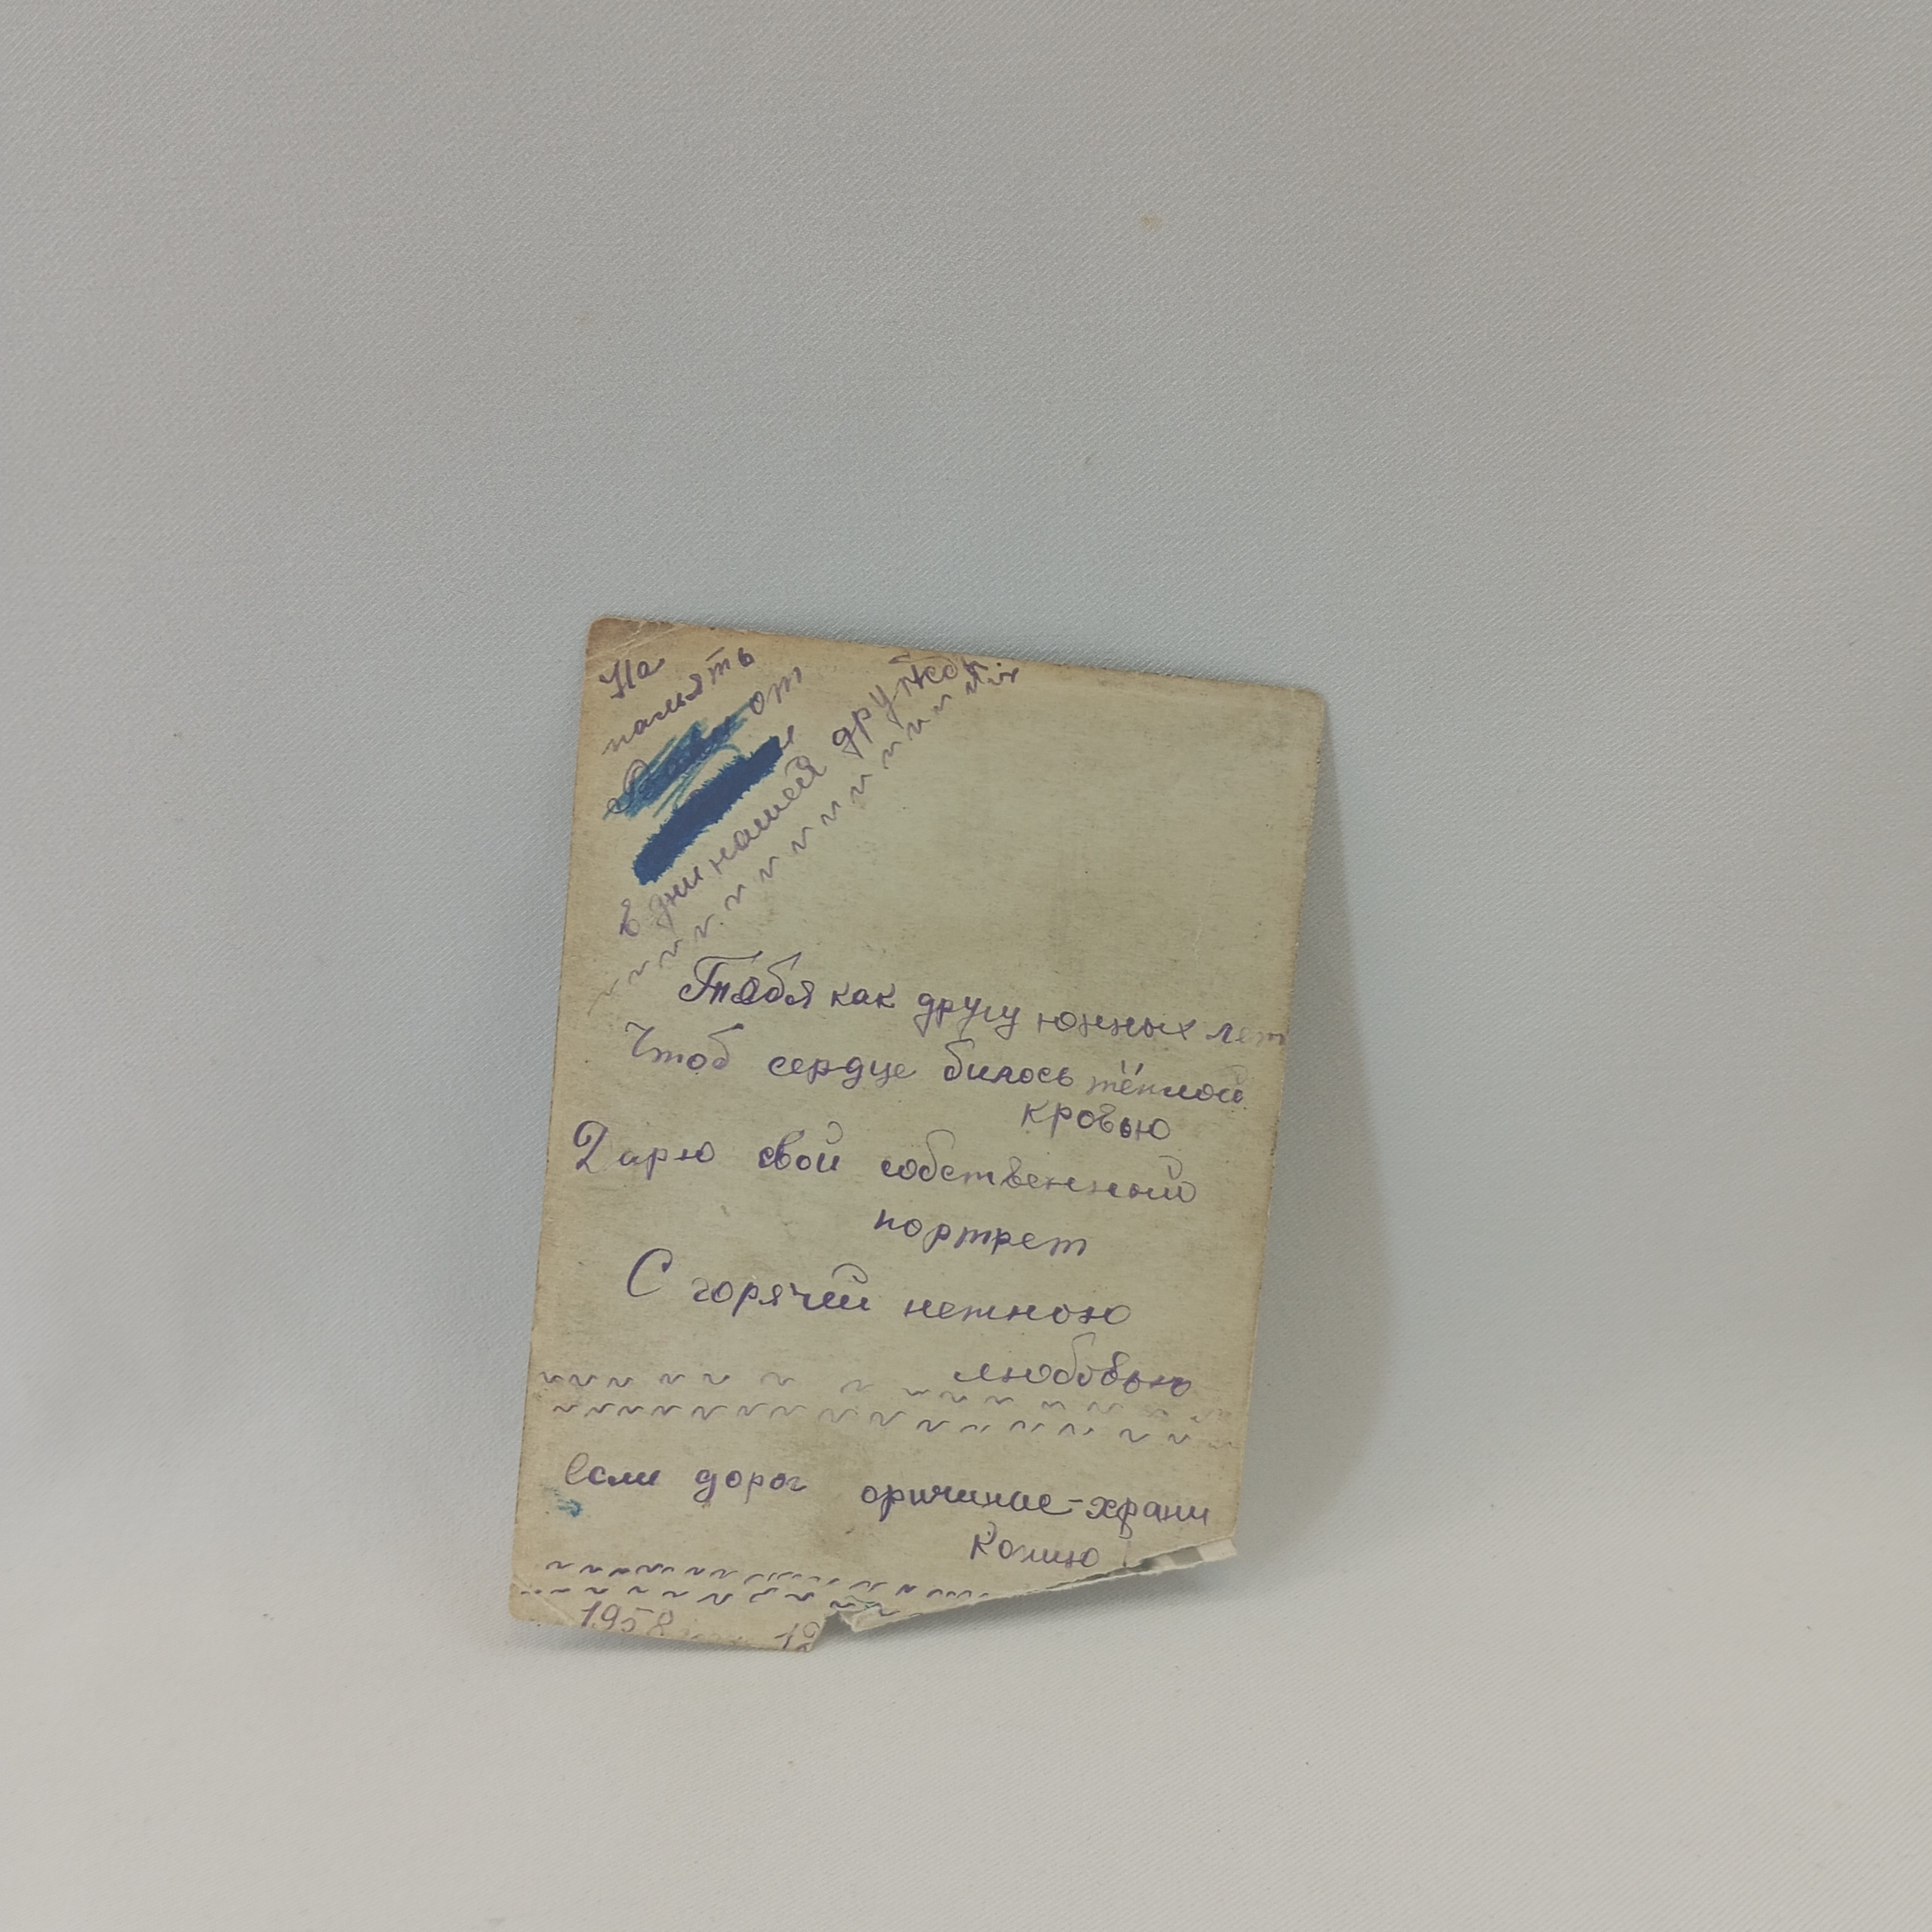 На
память
от
в дни нашей дружбы
Тебя как другу юнных лет
Чтоб сердце билось тёплой
кровью
Дарю свой собственный
портрет
С горячей нежною
любовью
Если дорог оричинис-храни
Копию!
1958 12